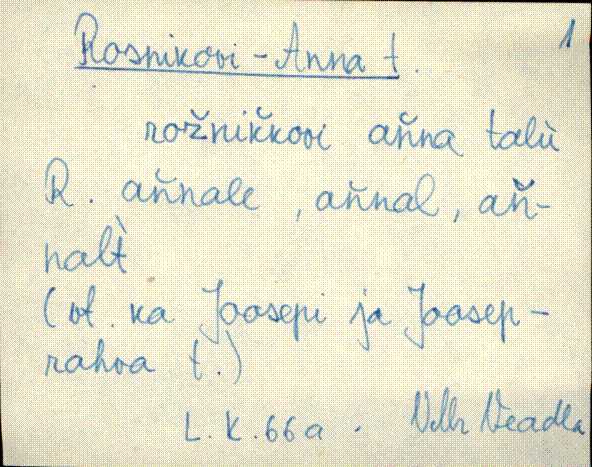 Rosnikovi - Anna t. 1
rožnikkovi ańna talù
R. ańnale, ańnal, ań-
nalt̀
(vt. ka Joosepi ja Joosep-
rahva t.)
L. K. 66 a.